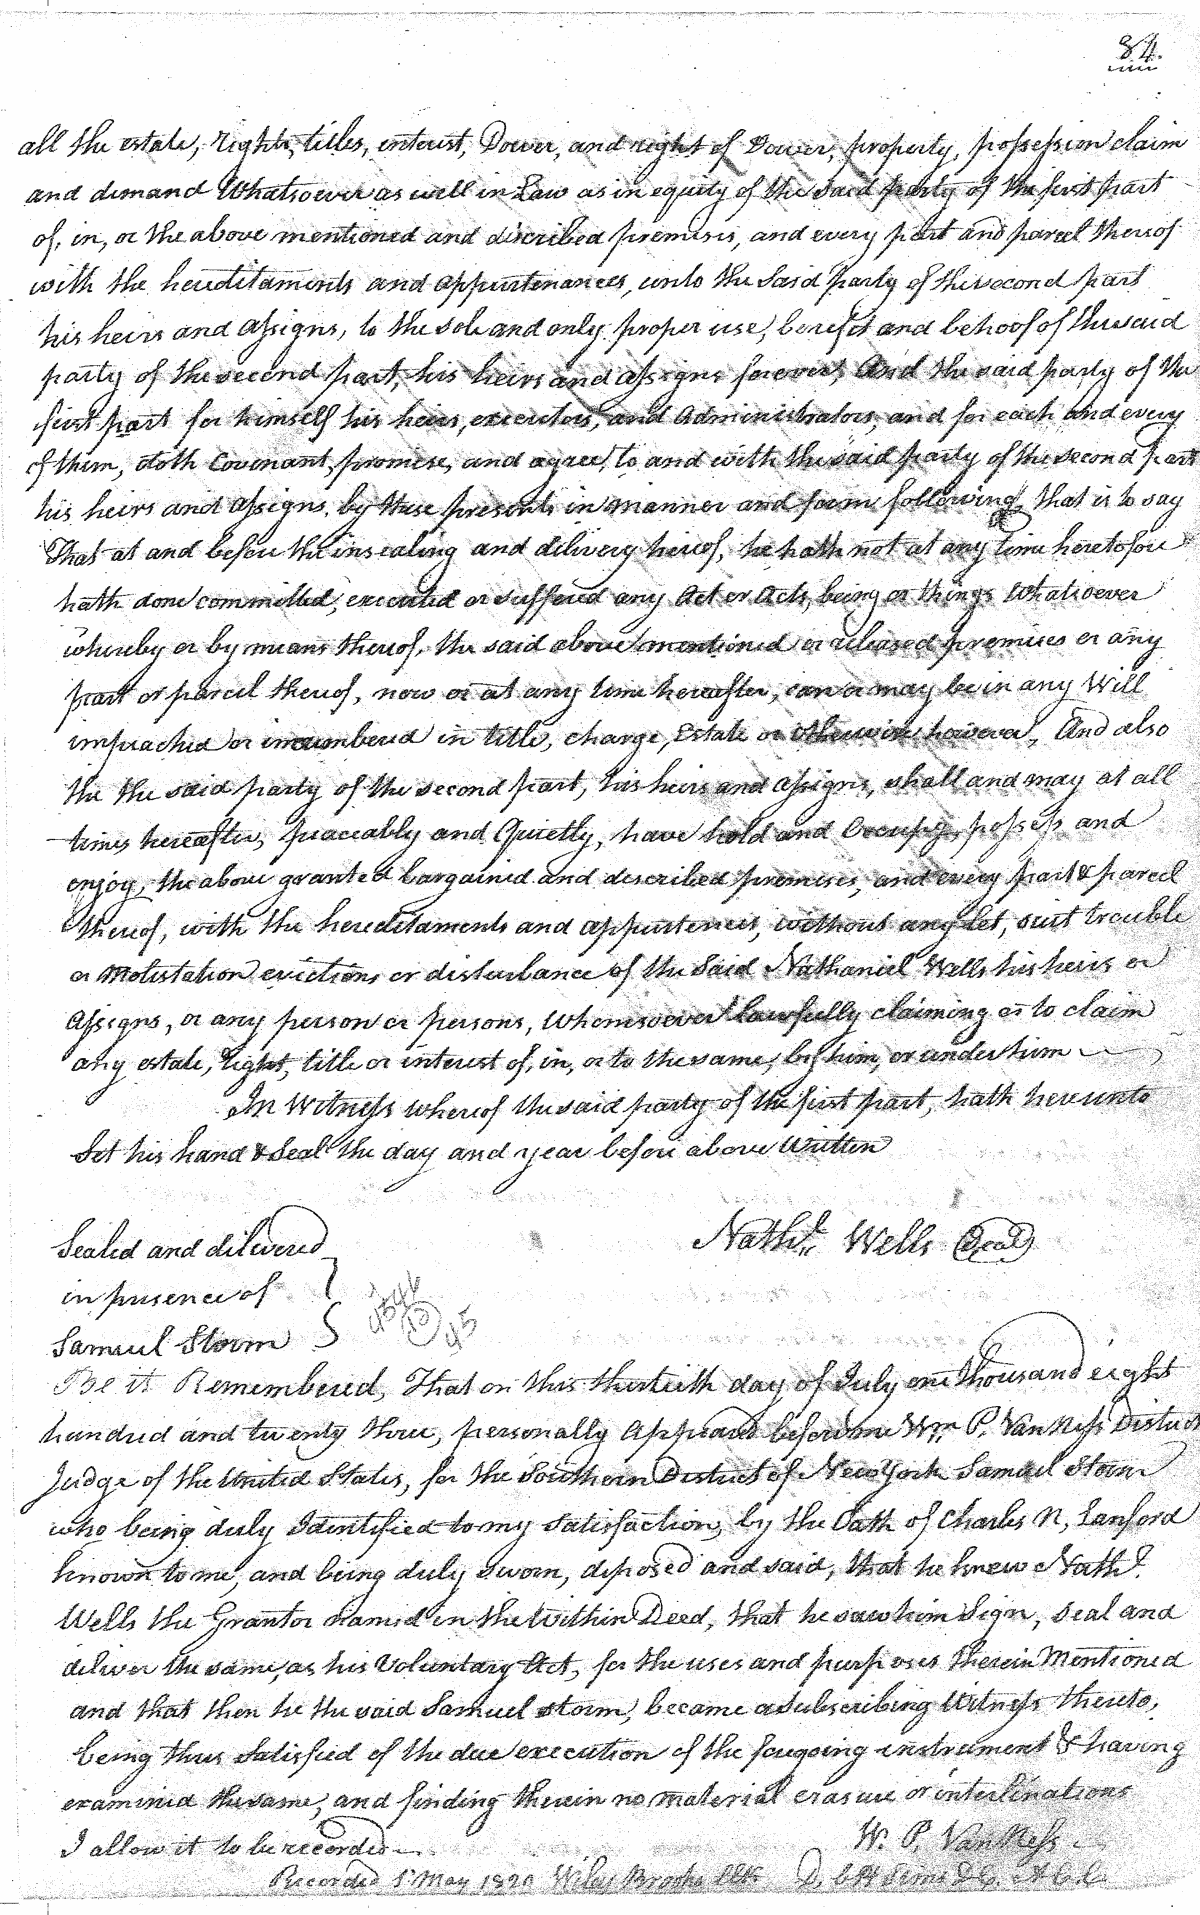 84.
all the estate, rights, titles, interest, Dower, and right of Dower, property, possession claim
and demand Whatsoever as well in Law as in equity of the said party of the first part
of, in, or the above mentioned and discribed premises, and every part and parcel thereof
with the hereditaments and appurtenances, unto the said party of the second part
his heirs and assigns, to the sole and only proper use, benefit and behoof of the said
party of the second part, his heirs and assigns forever, And the said party of the
first part for himself his heirs, executors, and Administrators, and for each and every
of them, doth Covenant, promise, and agree, to and with the said party of the second part
his heirs and assigns, by these presents in manner and form following, that is to say
That at and before the insealing and delivery hereof, he hath not at any time heretofore
hath done committed, executed or suffered any Act or Acts, being or things Whatsoever
whereby or by means thereof, the said above mentioned or released premises or any
part or parcel thereof, now or at any time hereafter, can or may be in any Will
impeached or incumbered in title, charge, Estate or otherwise however, And also
the the said party of the second part, his heirs and assigns, shall and may at all
times hereafter, peaceably and Quietly, have hold and Occupy, possess and
enjoy, the above granted bargained and described premises, and every part & parcel
thereof, with the hereditaments and appurtences, without any let, suit trouble
or Molestation evictions or disturbance of the said Nathaniel Wells his heirs or
Assigns, or any person or persons, Whomsoever lawfully claiming or to claim
any estate, right, title or interest of, in, or to the same, by him, or under him
In Witness whereof the said party of the first part, hath hereunto
Set his hand & Seal the day and year before above Written
Sealed and delivered
Nathl. Wells Seal
in presence of
Samuel Storm
Be it Remembered, That on this thirtieth day of July one thousand eight
hundred and twenty three, personally Appeared before me Wm P. Van Ness District
Judge of the United States, for the Southern District of New York Samuel Storm
who being duly Identified to my satisfaction, by the Oath of Charles N, Lanford
known to me, and being duly sworn, deposed and said, that he knew Nathl.
Wells the Grantor named in the within Deed, that he saw him sign, seal and
deliver the same, as his Voluntary Act, for the uses and purposes therein Mentioned
and that then he the said Samuel Storm, became a Subscribing Witness thereto,
being thus satisfied of the due execution of the foregoing instrument & having
examined the same, and finding therein no material erasure or interlinations
I allow it to be recorded
W. P. Van Ness
Recorded 1 May 1820 Wiley Brooks Clk